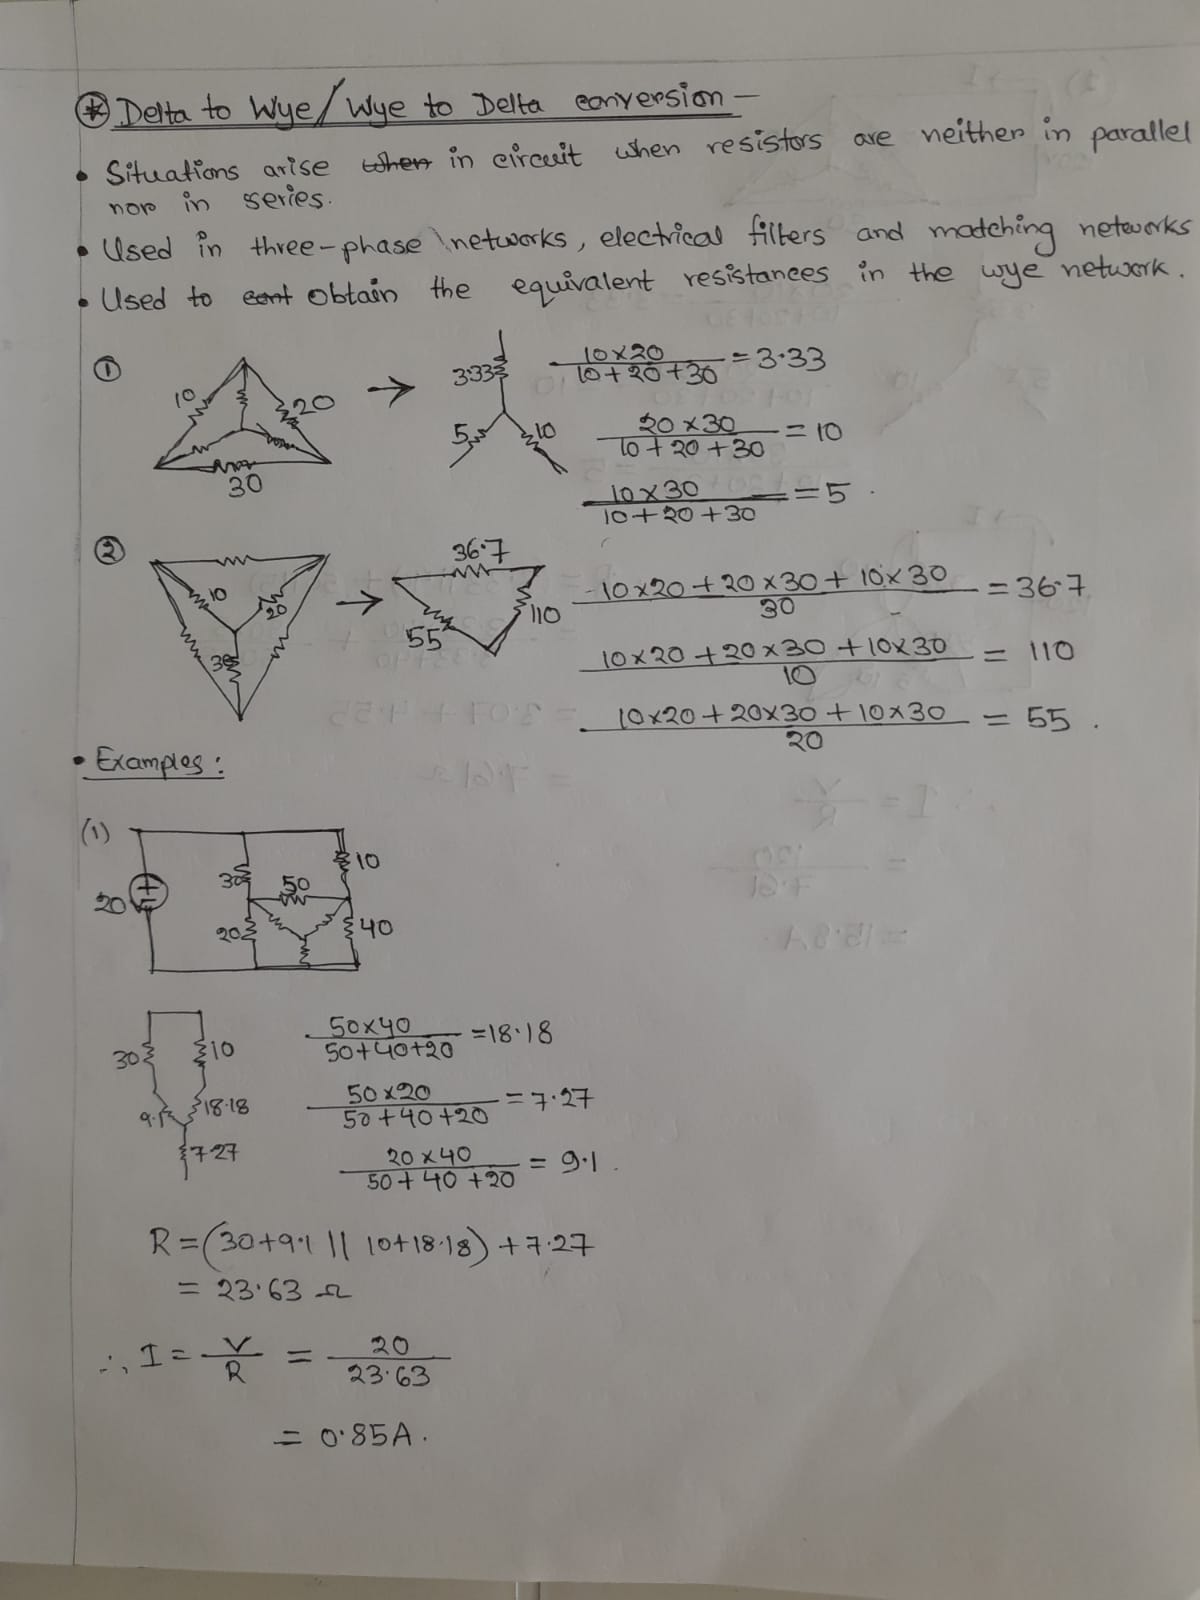 * Delta to Wye/Wye to Delta conversion -
• Situations arise when in circuit when resistors are neither in parallel
nor in series.
• Used in three-phase networks, electrical filters and matching networks
• Used to cont obtain the equivalent resistances in the wye network.
1
10 20 30
3.33 5 10
10×20 / 10+20+30 = 3.33
20×30 / 10+20+30 = 10
10×30 / 10+20+30 = 5.
2
10 20 30
36.7 110 55
10×20+20×30+10×30 / 30 = 36.7
10×20+20×30+10×30 / 10 = 110
10×20+20×30+10×30 / 20 = 55.
• Examples:
(1)
20 + - 30 50 10 20 40
30 10
9.1 18.18
7.27
50×40 / 50+40+20 = 18.18
50×20 / 50+40+20 = 7.27
20×40 / 50+40+20 = 9.1.
R = (30+9.1 || 10+18.18) + 7.27
= 23.63 Ω
∴ I = V / R = 20 / 23.63
= 0.85A.